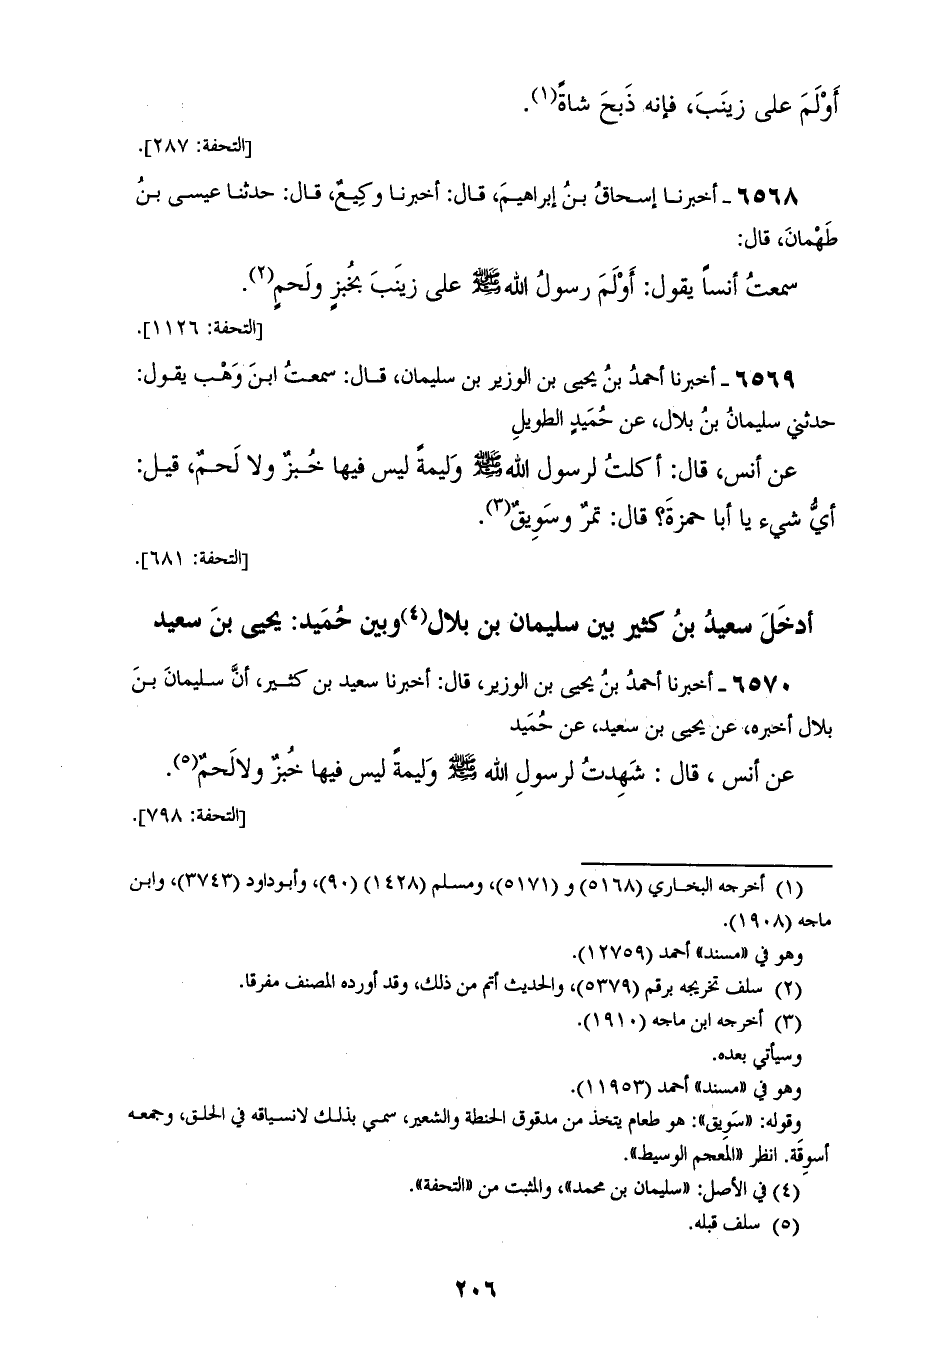 أَوْلَمَ على زينَبَ، فإنه ذَبحَ شاةً(١).
[التحفة: ٢٨٧].
٦٥٦٨ ـ أخبرنا إسحاقُ بنُ إبراهيمَ، قال: أخبرنا وكِيعٌ، قال: حدثنا عيسى بنُ
طَهْمانَ، قال:
سمعتُ أنساً يقول: أَوْلَمَ رسولُ اللهِ ﷺ على زينَبَ بخُبزٍ ولَحمٍ(٢).
[التحفة: ١١٢٦].
٦٥٦٩ ـ أخبرنا أحمدُ بنُ يحيى بن الوزير بن سليمان، قال: سمعتُ ابنَ وَهْب يقول:
حدثني سليمانُ بنُ بلال، عن حُمَيدٍ الطويلِ
عن أنس، قال: أكلتُ لرسول الله ﷺ وَليمةً ليس فيها خُبزٌ ولا لَحمٌ، قيل:
أيُّ شيء يا أبا حمزةَ؟ قال: تمرٌ وسَوِيقٌ(٣).
[التحفة: ٦٨١].
أدخَلَ سعيدُ بنُ كثير بين سليمان بن بلال(٤) وبين حُمَيد: يحيى بنَ سعيد
٦٥٧٠ ـ أخبرنا أحمدُ بنُ يحيى بن الوزير، قال: أخبرنا سعيد بن كثير، أنَّ سليمانَ بنَ
بلال أخبره، عن يحيى بن سعيد، عن حُمَيد
عن أنس ، قال : شَهِدتُ لرسولِ الله ﷺ وَليمةً ليس فيها خُبزٌ ولالَحمٌ(٥).
[التحفة: ٧٩٨].
(١) أخرجه البخاري (٥١٦٨) و (٥١٧١)، ومسلم (١٤٢٨) (٩٠)، وأبوداود (٣٧٤٣)، وابن
ماجه (١٩٠٨).
وهو في «مسند» أحمد (١٢٧٥٩).
(٢) سلف تخريجه برقم (٥٣٧٩)، والحديث أتم من ذلك، وقد أورده المصنف مفرقا.
(٣) أخرجه ابن ماجه (١٩١٠).
وسيأتي بعده.
وهو في «مسند» أحمد (١١٩٥٣).
وقوله: «سَوِيق»: هو طعام يتخذ من مدقوق الحنطة والشعير، سمي بذلك لانسياقه في الحلق، وجمعه
أسوِقَة. انظر «المعجم الوسيط».
(٤) في الأصل: «سليمان بن محمد»، والمثبت من «التحفة».
(٥) سلف قبله.
٢٠٦